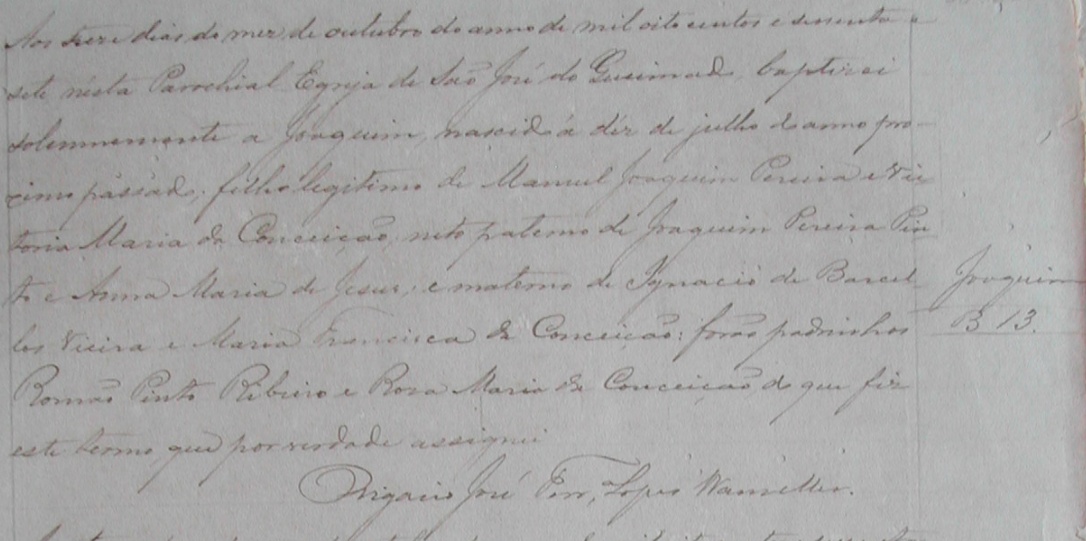 Aos treze dias do mez de outubro do anno de mil oito centos e sessenta e
sete nésta Parochial Egreja de São José do Queimado, baptisei
solemnemente a Joaquim, nascido á déz de julho do anno pro-
ximo passado, filho legitimo de Manuel Joaquim Pereira e Vic
toria Maria da Conceição, neto paterno de Joaquim Pereira Pin
to e Anna Maria de Jesus, e materno de Ignacio de Barcel
los Vieira e Maria Francisca da Conceição: forão padrinhos
Romão Pinto Ribeiro e Roza Maria da Conceição, do que fiz
este termo, que por verdade assignei
José Lopes
Joaquim
B 13.